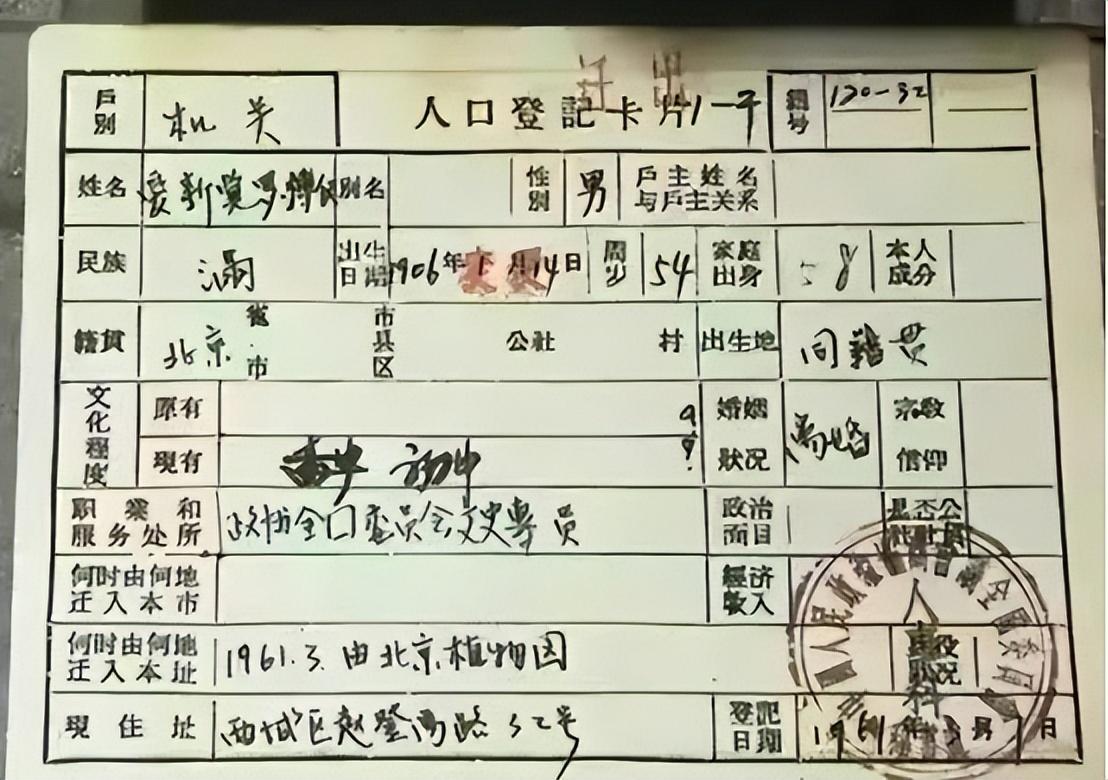 迁出
戶別 机关 人口登記卡片 一 編号 120-32
姓名 爱新觉罗 別名 性別 男 戶主姓名与戶主关系
民族 满 出生日期 1906年 月14日 周岁 54 家庭出身 本人成分
籍貫 北京 省市 市县区 公社 村 出生地 同籍贯
文化程度 原有 婚姻狀况 宗教信仰
現有 初中
职業和服务处所 政协全口委员会文史專员 政治面目 是否公社社員
何时由何地迁入本市 經济收入
何时由何地迁入本址 1961.3.由北京植物园 兵役狀况
現住址 西城区赵登禹路32号 登記日期 1961年3月 日
人事科